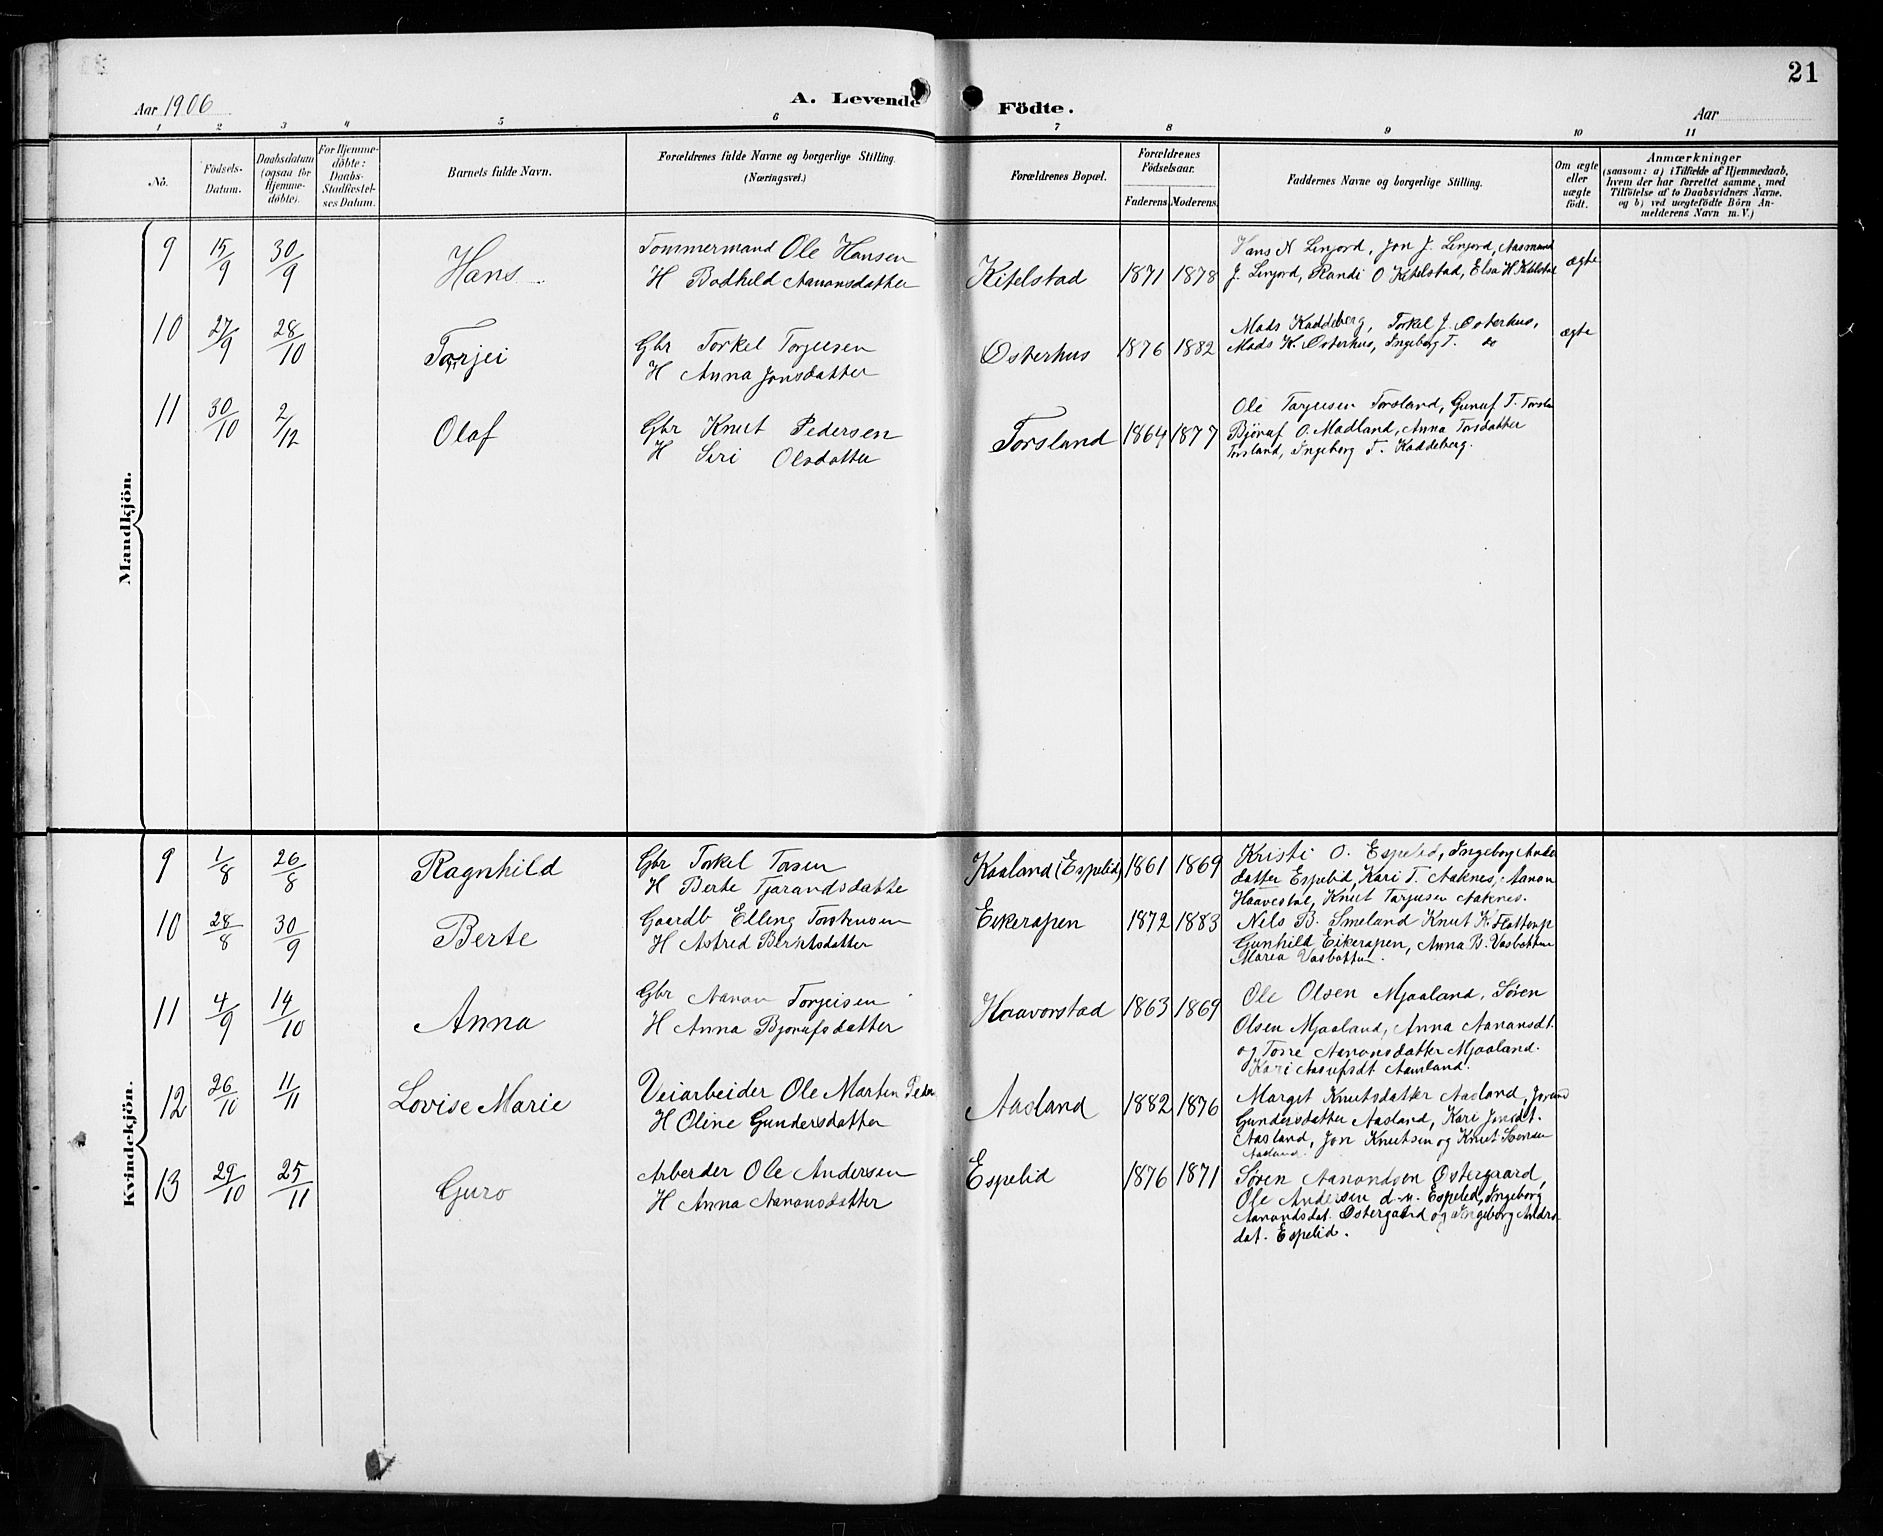 21
Aar 1906
A. Levende Födte.
Aar
1 2 3 4 5 6 7 8 9 10 11
No.
Födsels-Datum.
Daabsdatum (ogsaa for Hjemme-döbte).
For Hjemme-döbte: Daabs-Stadfæstel-ses Datum.
Barnets fulde Navn.
Forældrenes fulde Navne og borgerlige Stilling. (Næringsvei.)
Forældrenes Bopæl.
Forældrenes Födselsaar.
Faderens Moderens.
Faddernes Navne og borgerlige Stilling.
Om ægte eller uægte födt.
Anmærkninger
(saasom: a) i Tilfælde af Hjemmedaab,
hvem der har forrettet samme, med
Tilföielse af to Daabsvidners Navne.
og b) ved uægtefödte Börn An-
melderens Navn m. V.)
Mandkjön.
9 15/9 30/9 Hans Tømmermand Ole Hansen Kitelstad 1871 1878 Hans N Linjord, Jon J. Linjord, Aasmund ægte
H Bodhild Aanonsdatter J. Linjord, Randi O Kitelstad, Elsa H Kitelstad
10 27/9 28/10 Torjei Gbr Torkel Torjusen Østerhus 1876 1882 Mads Kaddeberg, Torkel J. Østerhus, ægte
H Anna Jonsdatter Mads K. Østerhus, Ingeborg T. do
11 30/10 2/12 Olaf Gbr Knut Pedersen Torsland 1864 1877 Ole Tarjusen Torsland, Gunuf T. Torsla
H Siri Olsdatter Björuf O. Madland, Anna Torsdatter
Torsland, Ingeborg T. Kaddeberg.
Kvindekjön.
9 1/8 26/8 Ragnhild Gbr Torkel Torsen Kaaland (Espelid) 1861 1869 Kristi O. Espelid, Ingeborg Anders
H Berte Tjarandsdatte datter Espelid, Kari T. Aaknes, Aanon
Haavestøl, Knut Tarjusen Aaknes.
10 28/8 30/9 Berte Gaardb Elling Torkensen Eikerapen 1872 1883 Nels B. Smeland Knut K. Flottorp
H Astred Berntsdatter Gunhild Eikerapen, Anna B. Vasbotten
Marea Vasbotten.
11 4/9 14/10 Anna Gbr Aanon Torjeisen Haavorstad 1863 1869 Ole Olsen Mjaaland, Søren
H Anna Bjorufsdatter Olsen Mjaaland, Anna Aanansdt.
og Torre Aanonsdatter Mjaaland.
Kari Aasufsdt Aamland.
12 26/10 11/11 Lovise Marie Veiarbeider Ole Marten Peder Aasland 1882 1876 Marget Knutsdatter Aasland, Jorand
H Oline Gundersdatter Gundersdatter Aasland, Kari Jonsdt.
Aasland, Jon Knutsen og Knut
Aasland.
13 29/10 25/11 Guro Arbeder Ole Andersen Espelid 1876 1871 Søren Aanondsen Østergaard,
H Anna Aanonsdatter Ole Andersen d. y. Espelid, Ingeborg
Aanondsdat. Østergaard og Ingeborg Anders
dat. Espelid.